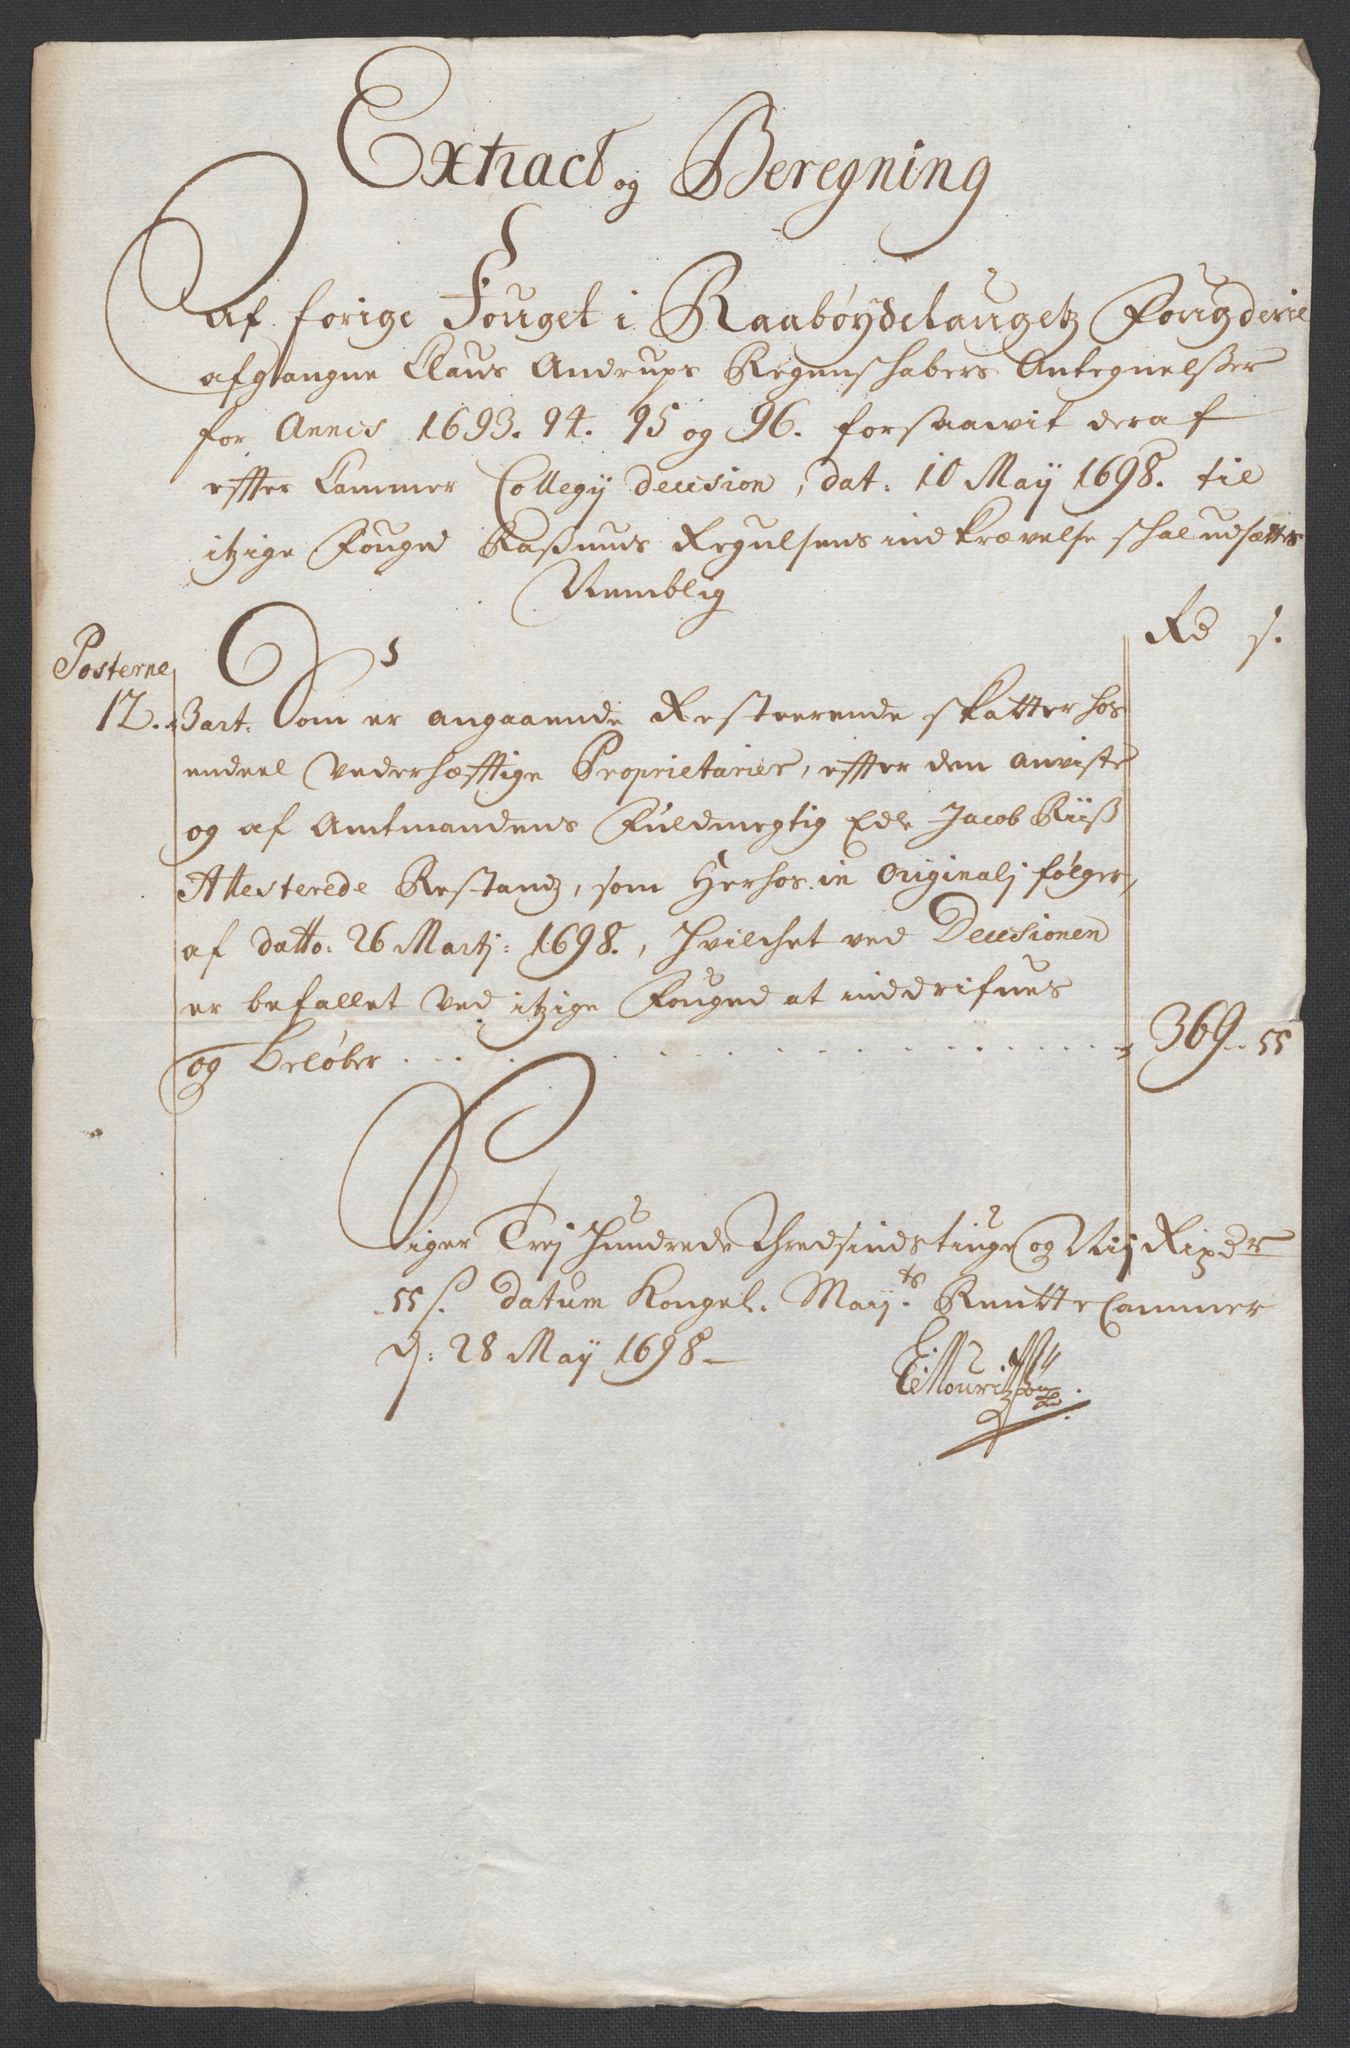 Extract og Beregning
Af forige Fouget i Raabøydelaugetz Fougderie
afgangne Claus Andrups Regenschabers Antegnelsser
for Annis 1693. 94. 95 og 96. forsaavit deraf
effter Cammer Collegij decision, dat: 10 Maij 1698. til
itzige Foúged Rasmus Regulsens indkrævelse schal udsættes
Nemblig
Rd s.
Posterne
12. 3art: Som er angaaende Resteerende skatter hos
endeel Vederhæfftige Proprietarier, effter den anviste
og af Amtmandens Fuldmegtig Edle Jacob Riiss
Attesterede Restandz, som Herhos in Originalj følger,
af datto: 26 Martj: 1698., Hvilchet ved Decisionen
er befallet Ved itzige Fouged at inddrifues
og Beløber . . . . . . . . . . 369 .. 55
Siger Trej Hundrede Thredsindstiuge og Nij Rixdr
55 s. datum Kongel. Maij.ts Rentte Cammer
d: 28 Maij 1698 -